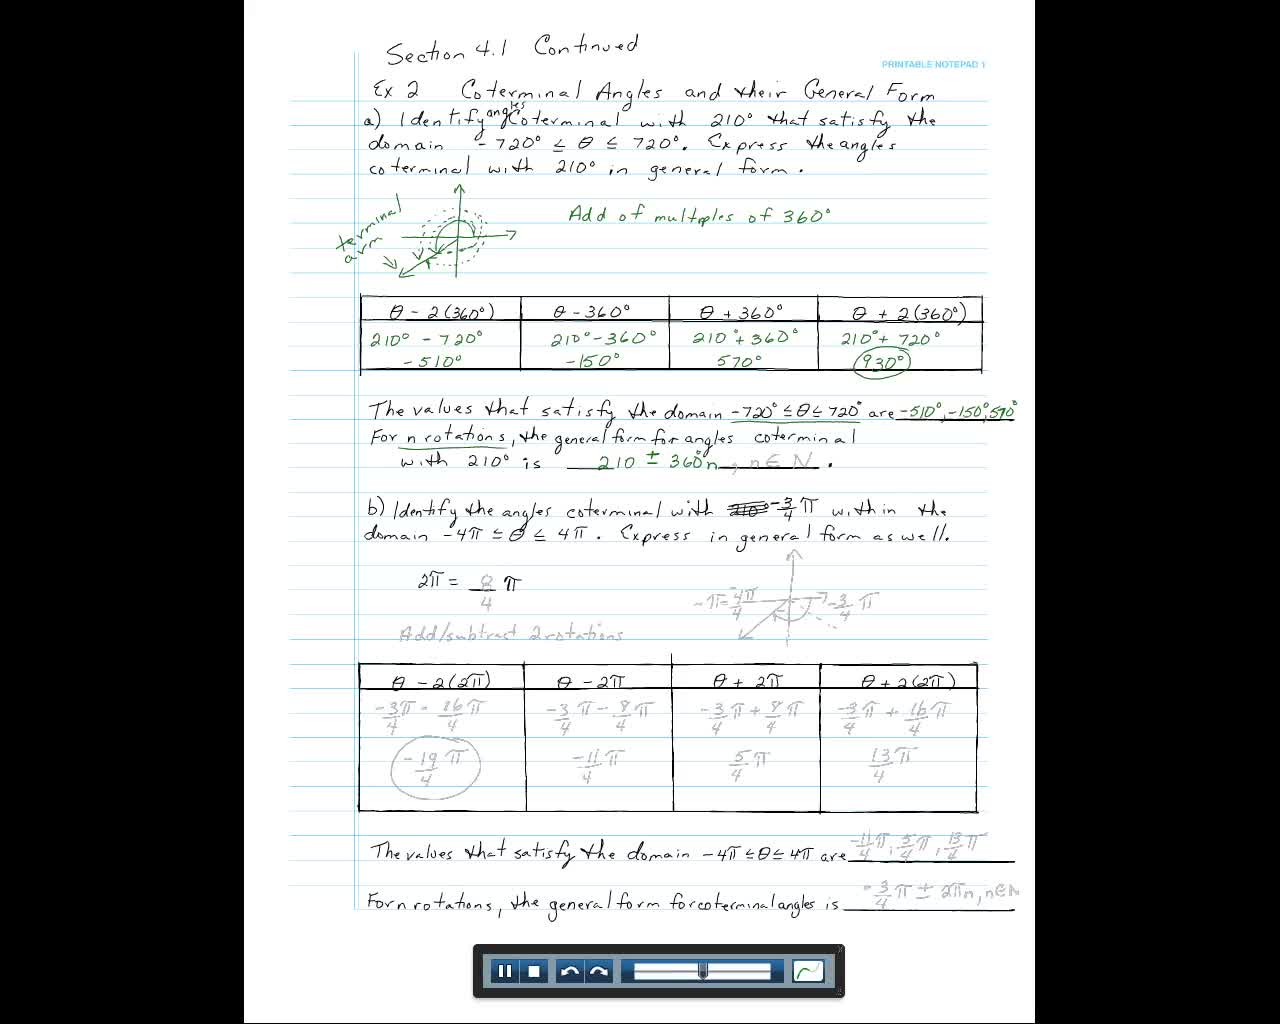 Section 4.1 Continued
PRINTABLE NOTEPAD 1
Ex 2 Coterminal Angles and their General Form
a) Identify angles Coterminal with 210° that satisfy the
domain -720° ≤ θ ≤ 720°. Express the angles
coterminal with 210° in general form.
terminal
arm
Add of multiples of 360°
θ - 2(360°) θ - 360° θ + 360° θ + 2(360°)
210° - 720° 210° - 360° 210° + 360° 210° + 720°
-510° -150° 570° 930°
The values that satisfy the domain -720° ≤ θ ≤ 720° are -510°, -150°, 570°
For n rotations, the general form for angles coterminal
with 210° is 210 ± 360°n, n ∈ N.
b) Identify the angles coterminal with -3/4 π within the
domain -4π ≤ θ ≤ 4π. Express in general form as well.
2π = 8/4 π
-π = -4π/4 -3/4 π
Add/subtract 2 rotations
θ - 2(2π) θ - 2π θ + 2π θ + 2(2π)
-3/4 π - 16/4 π -3/4 π - 8/4 π -3/4 π + 8/4 π -3/4 π + 16/4 π
-19/4 π -11/4 π 5/4 π 13/4 π
The values that satisfy the domain -4π ≤ θ ≤ 4π are -11/4 π, 5/4 π, 13/4 π
For n rotations, the general form for coterminal angles is -3/4 π ± 2πn, n ∈ N